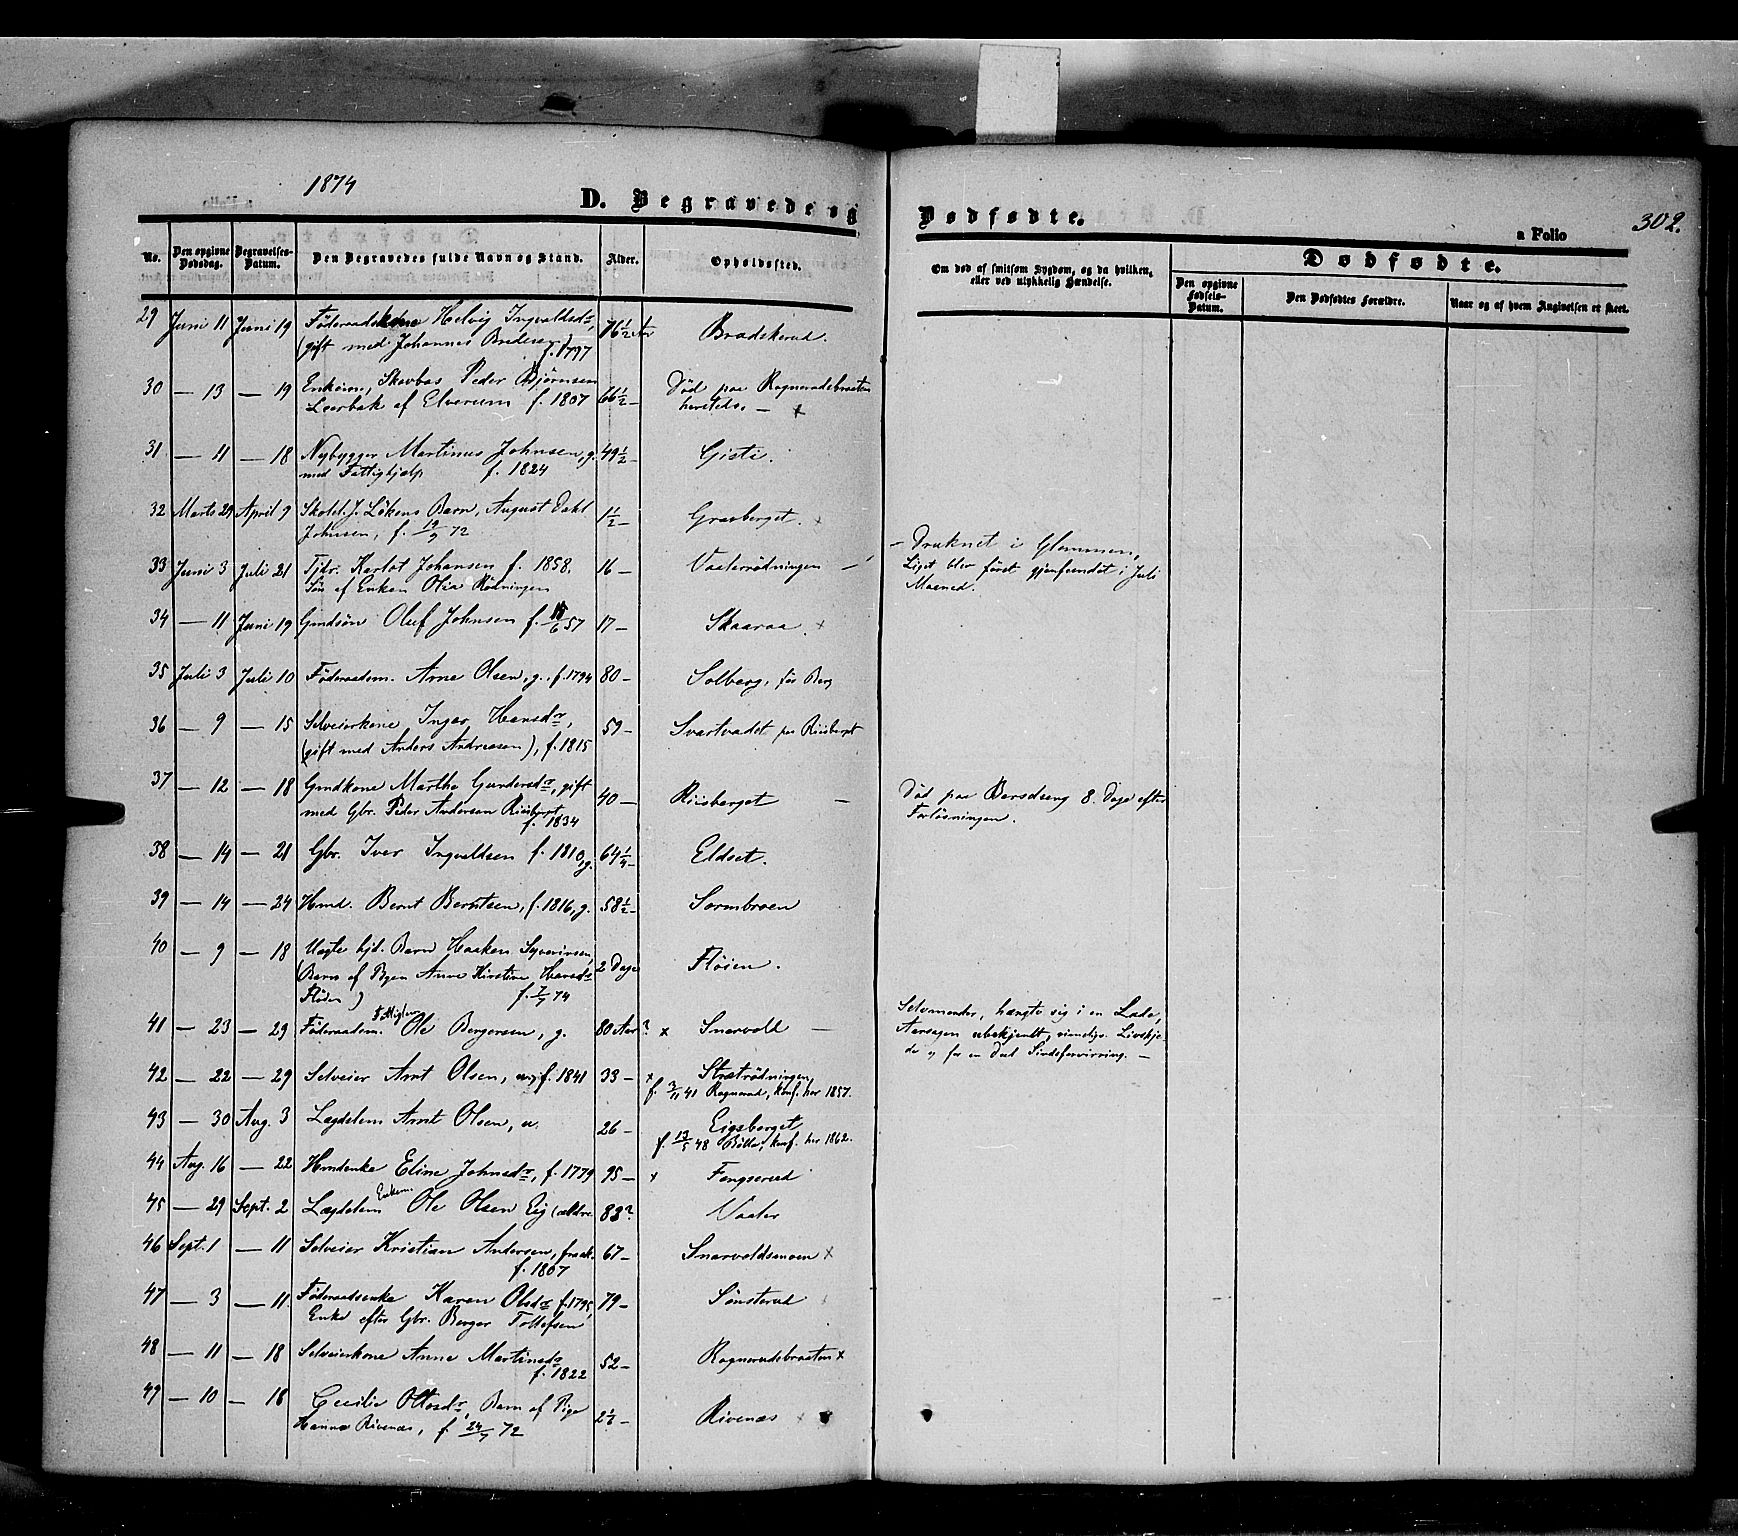 1874
D. Begravede og Dødfødte.
a Folio 302.
No. Den opgivne Dødsdag. Begravelses-Datum. Den Begravedes fulde Navn og Stand. Alder. Opholdssted.
Om død af smitsom Sygdom, og da hvilken, eller ved ulykkelig Hændelse.
Dødfødte.
Den opgivne Fødsels-Datum. Den Dødfødtes Forældre. Naar og af hvem Angivelsen er skeet.
29 Juni 11 Juni 19 Føderaadskone Helvig Ingvaldsdr, 76 1/2 Aar Bradskerud.
(gift med Johannes Pedersen) f. 1797
30 — 13 — 19 Enkem., Skovbas Peder Bjørnsen 66 1/2 — Død paa Ragnarudsbraaten
Leerbak af Elverum f. 1807 hersteds. — x
31 — 11 — 18 Nybygger Martinus Johnsen, g. 49 1/2 — Gisti.
med Fattighjælp f. 1824
32 Marts 29 April 9 Skolel. J. Løkens Barn, August Dahl 1 1/2 — Gravberget. x
Johnsen, f. 19/9 72
33 Juni 3 Juli 21 Tjdr. Karlot Johansen f. 1858. 16 — Vaalerrødningen — — Druknet i Glommen,
Søn af Enken Olia Rødningen Liget blev først gjenfundet i Juli
Maaned.
34 — 11 Juni 19 Gmdsøn Oluf Johnsen f. 15/6 57 17 — Skaaraa. x
35 Juli 3 Juli 10 Føderaadsm. Arne Olsen, g. f. 1794 80 — Solberg, før Berg
36 — 9 — 15 Selveierkone Inger Hansdr, 59 — Svartvadet paa Riisberget
(gift med Anders Andreasen), f. 1815
37 — 12 — 18 Gmdkone Marthe Gundersdr, gift 40 — Riisberget — Død paa Barselseng 8. Dage efter
med Gbr. Peder Andersen Riisberget Forløsningen.
f. 1834
38 — 14 — 21 Gbr. Iver Ingvaldsen f. 1810, g. 64 1/4 — Eldset.
39 — 14 — 24 Hmd. Bernt Berntsen, f. 1816, g. 58 1/2 — Sormbroen
40 — 9 — 18 Uægte hjd. Barn Haaken Syverinsen, 2 Dage Fløien.
(Barn af Pigen Anne Kirstine Hansdr
Fløien) f. 7/7 74
41 — 23 — 29 Føderaadsm. Fattiglem Ole Bergersen, g. 80 Aar? x Snarvold — Selvmorder, hængte sig i en Lade,
Aarsagen ubekjendt, rimeligv. Livskje-
de og for en Deel Sindsforvirring. —
42 — 22 — 29 Selveier Arnt Olsen, ug. f. 1841 33 — x Strætrødningen,
f. 3/11 41 Ragnarud, konf. her 1857.
43 — 30 Aug. 3 Lægdslem Arnt Olsen, u. 26 — Eigsberget
f. 13/5 48 Bølla, konf. her 1862.
44 Aug. 16 — 22 Hmdenke Eline Johnsdr, f. 1779 95 — x Fengserud
45 — 29 Sept. 2 Lægdslem Enkem. Ole Olsen Eig (ældre 83? Vaaler
46 Sept. 1 — 11 Selveier Kristian Andersen, frask. 67 — Snarvoldsmoen x
f. 1807
47 — 3 — 11. Føderaadsenke Karen Olsdr f. 1795, 79 — Sønsterud
Enke efter Gbr. Berger Tollefsen
48 — 11 — 18 Selveierkone Anne Martinsdr 52 — Ragnarudsbraaten x
f. 1822
49 — 10 — 18 Cecilie Ottosdr, Barn af Pige 2 1/2 — Rivenæs x
Hanna Rivenæs, f. 24/7 72